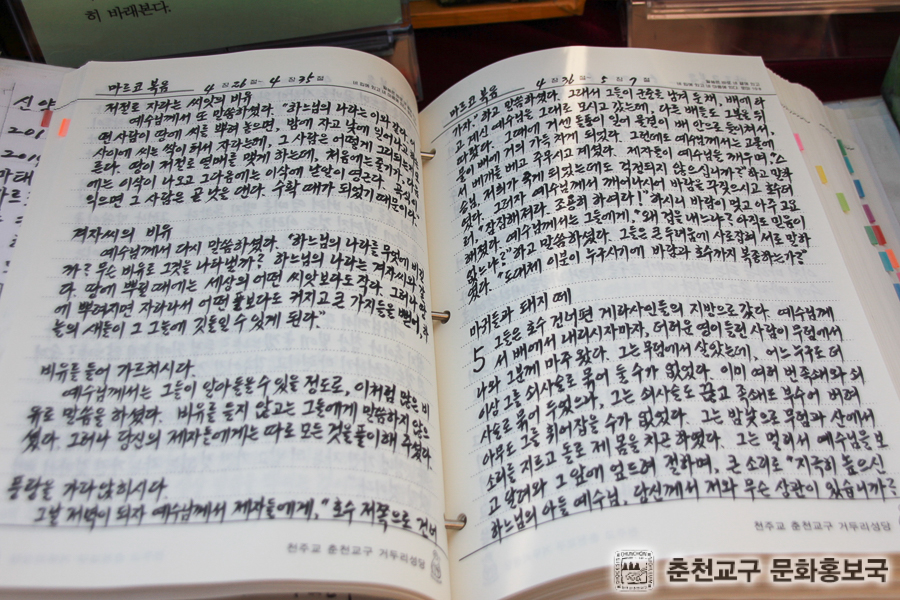 히 바래본다.
신약
마르코 복음 4 장 26 절~ 4 장 35 절
저절로 자라는 씨앗의 비유
예수님께서 또 말씀하셨다. "하느님의 나라는 이와 같다. 어
떤 사람이 땅에 씨를 뿌려 놓으면, 밤에 자고 낮에 일어나고 하는
사이에 씨는 싹이 터서 자라는데, 그 사람은 어떻게 그리되는지 모
른다. 땅이 저절로 열매를 맺게 하는데, 처음에는 줄기가, 다음
에는 이삭이 나오고 그다음에는 이삭에 낟알이 영근다. 곡식이
익으면 그 사람은 곧 낫을 댄다. 수확 때가 되었기 때문이다."
겨자씨의 비유
예수님께서 다시 말씀하셨다. "하느님의 나라를 무엇에 비길
까? 무슨 비유로 그것을 나타낼까? 하느님의 나라는 겨자씨와 같
다. 땅에 뿌릴 때에는 세상의 어떤 씨앗보다도 작다. 그러나 땅
에 뿌려지면 자라나서 어떤 풀보다도 커지고 큰 가지들을 뻗어, 하
늘의 새들이 그 그늘에 깃들일 수 있게 된다."
비유를 들어 가르치시다.
예수님께서는 그들이 알아들을 수 있을 정도로, 이처럼 많은 비
유로 말씀을 하셨다. 비유를 들지 않고는 그들에게 말씀하지 않으
셨다. 그러나 당신의 제자들에게는 따로 모든 것을 풀이해 주셨다.
풍랑을 가라앉히시다.
그날 저녁이 되자 예수님께서 제자들에게, "호수 저쪽으로 건너
천주교 춘천교구 거두리성당
마르코 복음 4 장 36 절~ 5 장 7 절
가자." 하고 말씀하셨다. 그래서 그들이 군중을 남겨 둔 채, 배에 타
고 계신 예수님을 그대로 모시고 갔는데, 다른 배들도 그분을 뒤
따랐다. 그때에 거센 돌풍이 일어 물결이 배 안으로 들이쳐서,
물이 배에 거의 가득 차게 되었다. 그런데도 예수님께서는 고물에
서 베개를 베고 주무시고 계셨다. 제자들이 예수님을 깨우며, "스
승님, 저희가 죽게 되었는데도 걱정되지 않으십니까?" 하고 말하
였다. 그러자 예수님께서 깨어나시어 바람을 꾸짖으시고 호수더
러, "잠잠해져라. 조용히 하여라!" 하시니 바람이 멎고 아주 고요
해졌다. 예수님께서는 그들에게, "왜 겁을 내느냐? 아직도 믿음이
없느냐?" 하고 말씀하셨다. 그들은 큰 두려움에 사로잡혀 서로 말하
였다. "도대체 이분이 누구시기에 바람과 호수까지 복종하는가?"
마귀들과 돼지 떼
5 그들은 호수 건너편 게라사인들의 지방으로 갔다. 예수님께
서 배에서 내리시자마자, 더러운 영이 들린 사람이 무덤에서
나와 그분께 마주 왔다. 그는 무덤에서 살았는데, 어느 누구도 더
이상 그를 쇠사슬로 묶어 둘 수가 없었다. 이미 여러 번 족쇄와 쇠
사슬로 묶어 두었으나, 그는 쇠사슬도 끊고 족쇄도 부수어 버려
아무도 그를 휘어잡을 수가 없었다. 그는 밤낮으로 무덤과 산에서
소리를 지르고 돌로 제 몸을 치곤 하였다. 그는 멀리서 예수님을 보
고 달려와 그 앞에 엎드려 절하며, 큰 소리로 "지극히 높으신
하느님의 아들 예수님, 당신께서 저와 무슨 상관이 있습니까?
춘천교구 문화홍보국